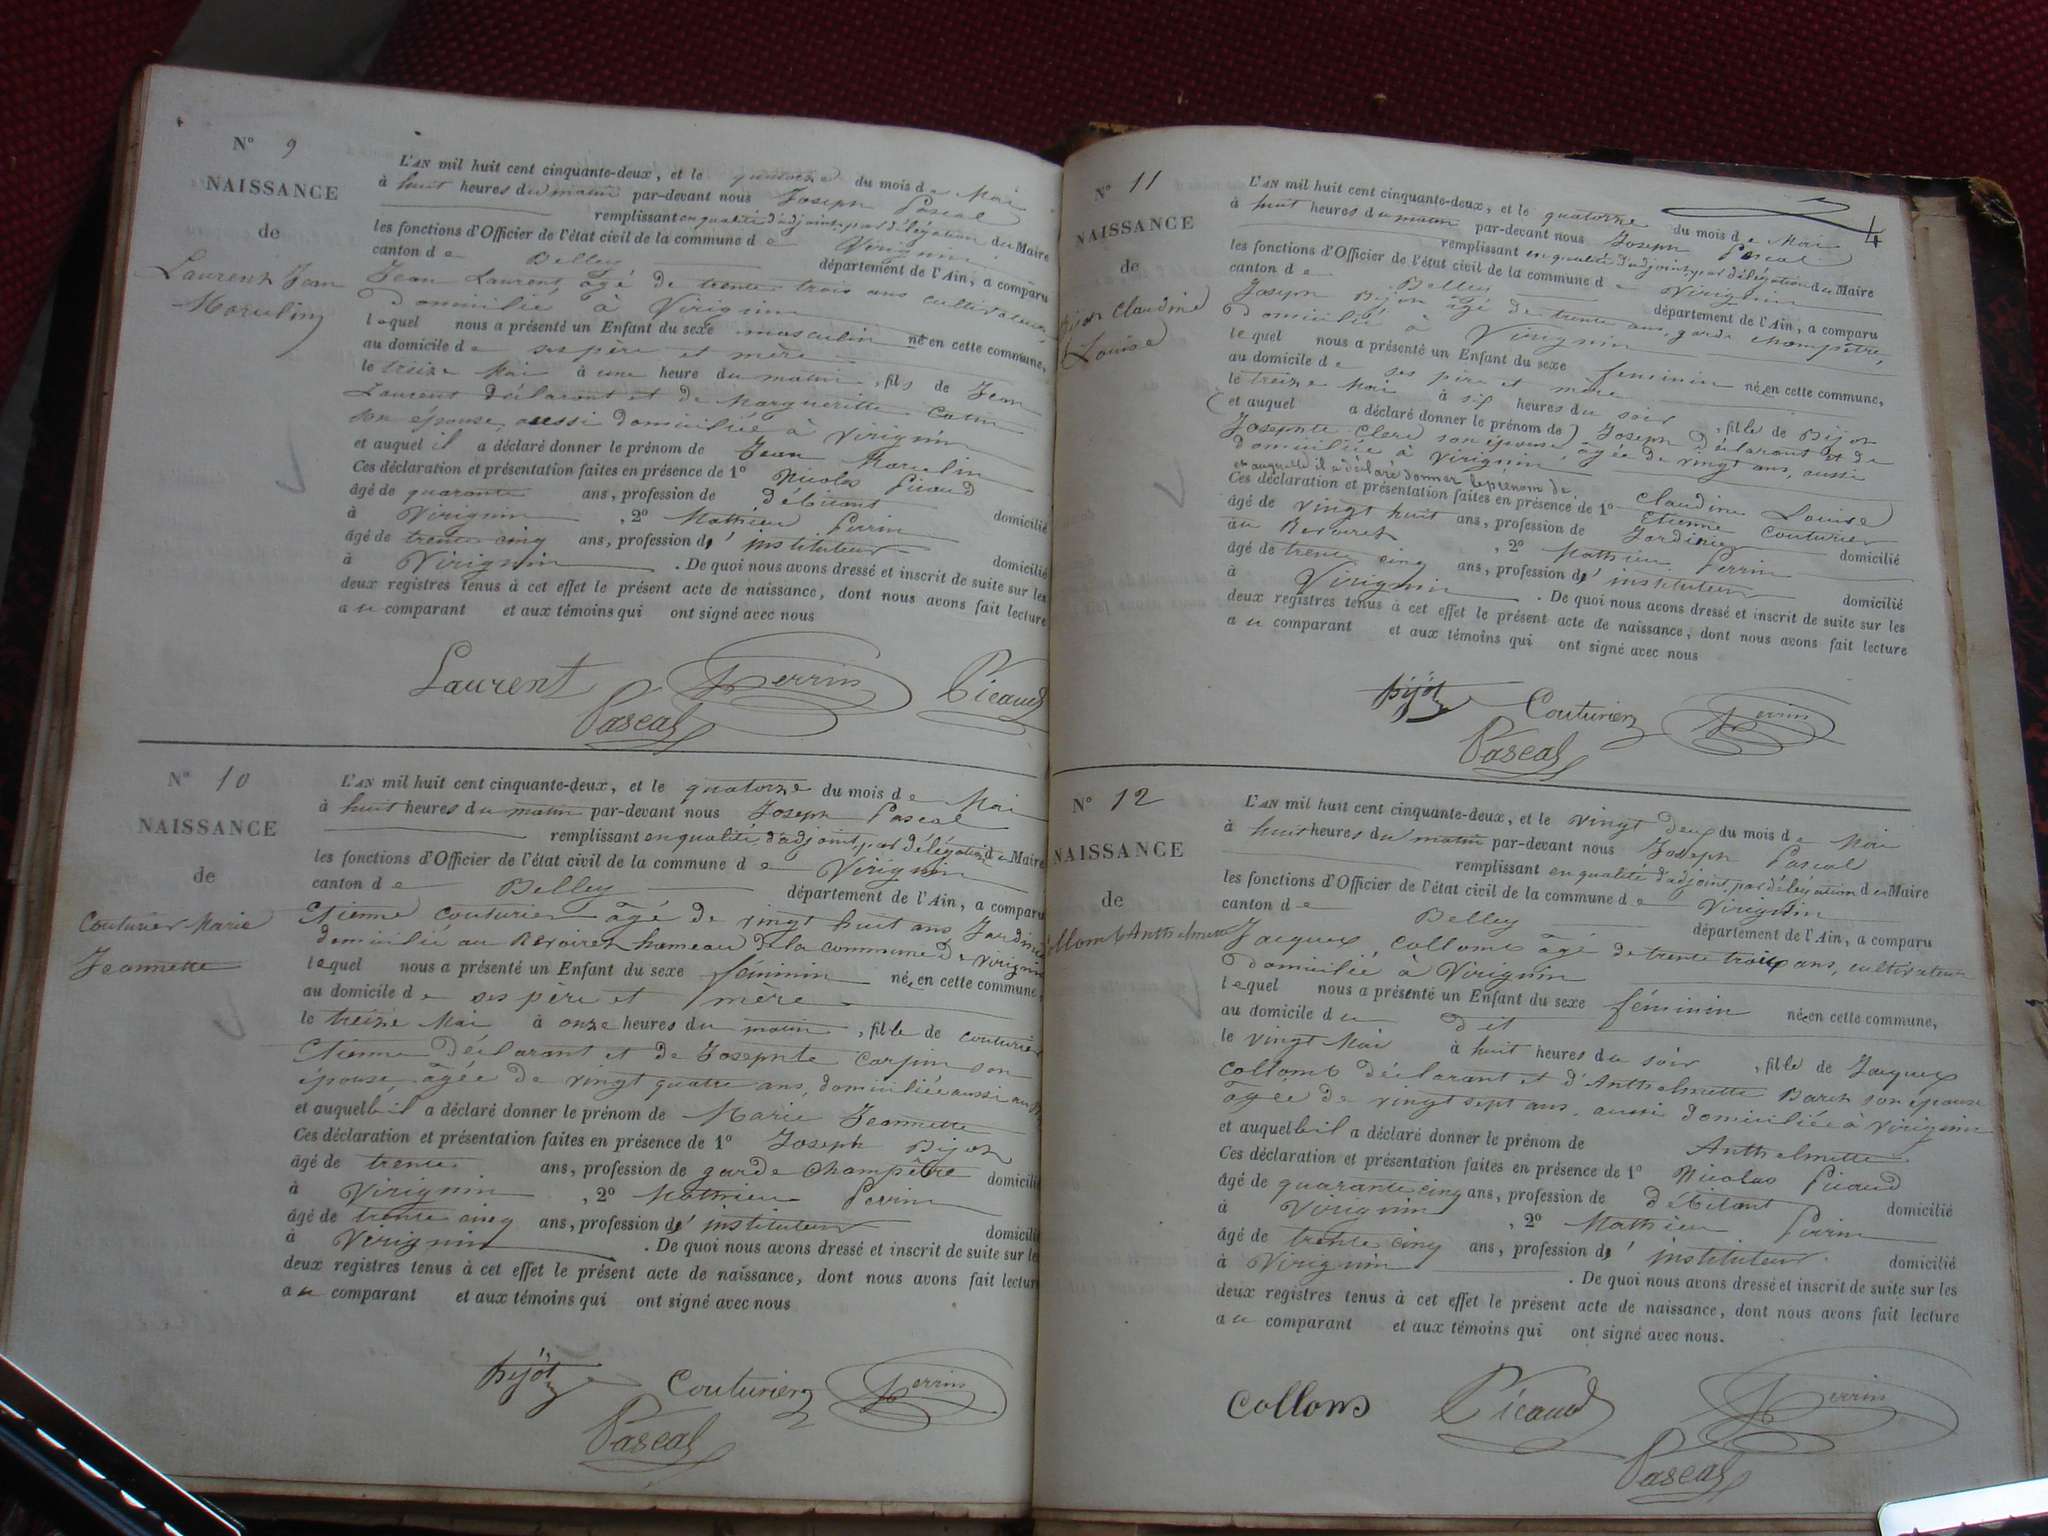 N° 9
NAISSANCE
de
Laurent Jean
Marcelin
L'AN mil huit cent cinquante-deux, et le quatorze du mois de Mai
à huit heures du matin par-devant nous Joseph Pascal
remplissant en qualité d'adjoint, par délégation du Maire
les fonctions d'Officier de l'état civil de la commune de Virignin
canton de Belley département de l'Ain, a comparu
Jean Laurent, âgé de trente trois ans cultivateur
domicilié à Virignin
lequel nous a présenté un Enfant du sexe masculin né en cette commune,
au domicile de ses père et mère
le treize Mai à une heure du matin, fils de Jean
Laurent déclarant et de Margueritte
son épouse, aussi domiciliée à Virignin
et auquel il a déclaré donner le prénom de Jean Marcelin
Ces déclaration et présentation faites en présence de 1° Nicolas Picaud
âgé de quarante ans, profession de débitant domicilié
à Virignin, 2° Mathieu Perrin
âgé de trente cinq ans, profession d'instituteur domicilié
à Virignin. De quoi nous avons dressé et inscrit de suite sur les
deux registres tenus à cet effet le présent acte de naissance, dont nous avons fait lecture
au comparant et aux témoins qui ont signé avec nous
Laurent Perrin Picaud
Pascal
N° 10
NAISSANCE
de
Couturier Marie
Jeannette
L'AN mil huit cent cinquante-deux, et le quatorze du mois de Mai
à huit heures du matin par-devant nous Joseph Pascal
remplissant en qualité d'adjoint, par délégation du Maire
les fonctions d'Officier de l'état civil de la commune de Virignin
canton de Belley département de l'Ain, a comparu
Etienne Couturier âgé de vingt huit ans Jardinier
domicilié au Revoiret hameau de la commune de Virignin
lequel nous a présenté un Enfant du sexe féminin née en cette commune,
au domicile de ses père et mère
le treize Mai à onze heures du matin, fille de Couturier
Etienne déclarant et de Josephte Carpin son
épouse, âgée de vingt quatre ans, domiciliée aussi au
et auquelle il a déclaré donner le prénom de Marie Jeannette
Ces déclaration et présentation faites en présence de 1° Joseph Bijot
âgé de trente ans, profession de garde champêtre domicilié
à Virignin, 2° Mathieu Perrin
âgé de trente cinq ans, profession d'instituteur domicilié
à Virignin. De quoi nous avons dressé et inscrit de suite sur les
deux registres tenus à cet effet le présent acte de naissance, dont nous avons fait lecture
au comparant et aux témoins qui ont signé avec nous
Bijot Couturier Perrin
Pascal
4
N° 11
NAISSANCE
de
Bijot Claudine
Louise
L'AN mil huit cent cinquante-deux, et le quatorze du mois de Mai
à huit heures du matin par-devant nous Joseph Pascal
remplissant en qualité d'adjoint, par délégation du Maire
les fonctions d'Officier de l'état civil de la commune de Virignin
canton de Belley département de l'Ain, a comparu
Joseph Bijot âgé de trente ans, garde champêtre,
domicilié à Virignin
lequel nous a présenté un Enfant du sexe féminin née en cette commune,
au domicile de ses père et mère
le treize Mai à six heures du soir, fille de Bijot
(et auquel a déclaré donner le prénom de) Joseph déclarant et de
Josephte Clerc son épouse, âgée de vingt ans, aussi
domiciliée à Virignin
et auquelle il a déclaré donner le prénom de Claudine Louise
Ces déclaration et présentation faites en présence de 1° Etienne Couturier
âgé de vingt huit ans, profession de Jardinier domicilié
au Revoiret, 2° Mathieu Perrin
âgé de trente cinq ans, profession d'instituteur domicilié
à Virignin. De quoi nous avons dressé et inscrit de suite sur les
deux registres tenus à cet effet le présent acte de naissance, dont nous avons fait lecture
au comparant et aux témoins qui ont signé avec nous
Bijot Couturier Perrin
Pascal
N° 12
NAISSANCE
de
Collomb Anthelmette
L'AN mil huit cent cinquante-deux, et le vingt deux du mois de Mai
à huit heures du matin par-devant nous Joseph Pascal
remplissant en qualité d'adjoint, par délégation du Maire
les fonctions d'Officier de l'état civil de la commune de Virignin
canton de Belley département de l'Ain, a comparu
Jacques Collomb âgé de trente trois ans, cultivateur
domicilié à Virignin
lequel nous a présenté un Enfant du sexe féminin née en cette commune,
au domicile du dit
le vingt Mai à huit heures du soir, fille de Jacques
Collomb déclarant et d'Anthelmette son épouse
âgée de vingt sept ans, aussi domiciliée à Virignin
et auquelle il a déclaré donner le prénom de Anthelmette
Ces déclaration et présentation faites en présence de 1° Nicolas Picaud
âgé de quarante cinq ans, profession de débitant domicilié
à Virignin, 2° Mathieu Perrin
âgé de trente cinq ans, profession d'instituteur domicilié
à Virignin. De quoi nous avons dressé et inscrit de suite sur les
deux registres tenus à cet effet le présent acte de naissance, dont nous avons fait lecture
au comparant et aux témoins qui ont signé avec nous.
Collomb Picaud Perrin
Pascal